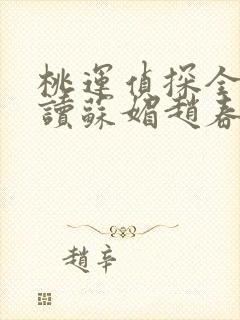 桃運偵探全
讀蘇媚趙春
趙辛